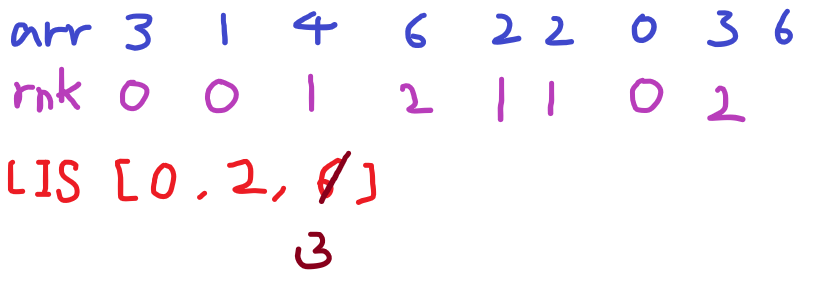 arr 3 1 4 6 2 2 0 3 6
rnk 0 0 1 2 1 1 0 2
LIS [0, 2, 6]
3